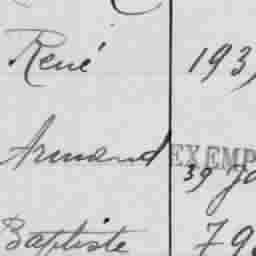 René 193
Armand EXEMP
39
Baptiste 79